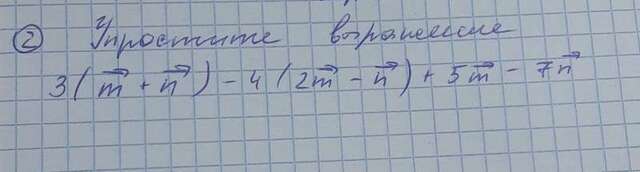 ② Упростите выражение
3(m⃗ + n⃗) - 4(2m⃗ - n⃗) + 5m⃗ - 7n⃗